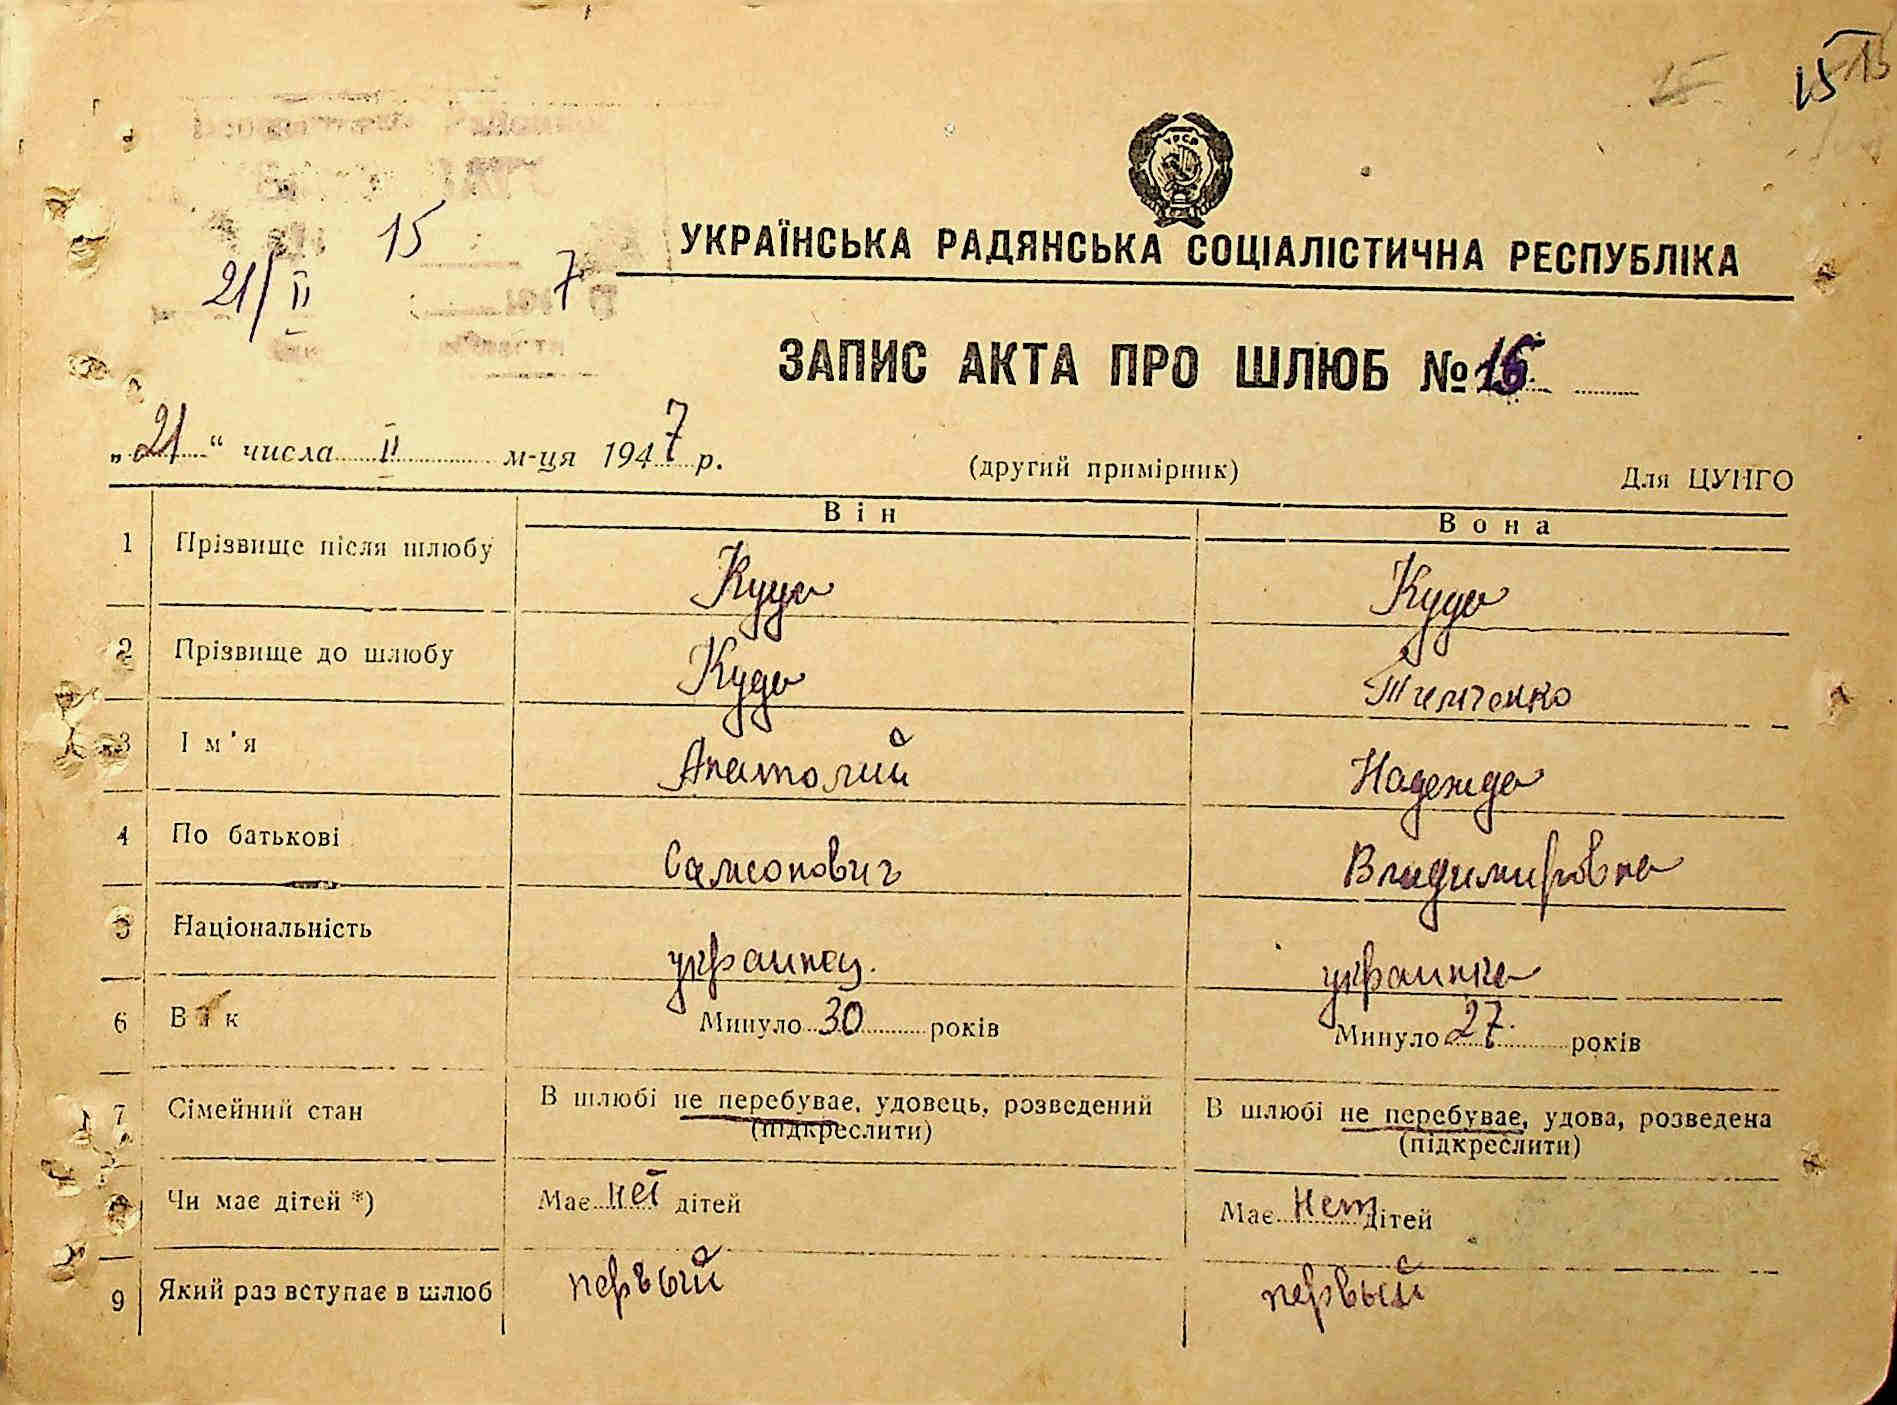 15 15
15
УРСР
УКРАЇНСЬКА РАДЯНСЬКА СОЦІАЛІСТИЧНА РЕСПУБЛІКА
15
21/II 7
ЗАПИС АКТА ПРО ШЛЮБ № 15
„21“ числа II м-ця 1947 р.
(другий примірник) Для ЦУНГО
Він Вона
1 Прізвище після шлюбу Куда Куда
2 Прізвище до шлюбу Куда Тимченко
3 Ім'я Анатолий Надежда
4 По батькові Самсонович Владимировна
5 Національність украинец. украинка
6 Вік Минуло 30 років Минуло 27 років
7 Сімейний стан В шлюбі не перебуває, удовець, розведений В шлюбі не перебуває, удова, розведена
(підкреслити) (підкреслити)
8 Чи має дітей *) Має нет дітей Має нет дітей
9 Який раз вступає в шлюб первый первый